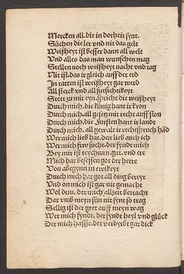 Mercken all die in dorheit sint
Suchen die ler vnd nit da gelt
Weißheyt ist besser dann all welt
Vnd alles das man wunschen mag
Stellen noch weißheyt nacht vnd tag
Nit ist das ir gleich auff der erd
In ratten ist weißheyt gar werd
All sterck vnd all fursichtikeyt
Stett zu mir eyn spricht die weißheyt
Durch mich die kunig hant ir kron
Durch mich all gesetz mit recht auff ston
Durch mich die fursten hant ir lande
Durch mich all gewalt ir rechtspruch
Wer mich lieb hat den lieb auch ich
Wer mich frw sucht der findt mich
Bey mir ist reychtum gut vnd ere
Mich hat besessen got der herre
Von anbegynn in ewikeyt
Durch mich hat got all ding bereyt
Vnd on mich ist gar nit gemacht
Wol dem der mich alzeyt betracht
Dar vmb meyn sun nit seynt so trag
Sellig ist der geet auff meyn weg
Wer mich fyndt der fyndt heyl vnd gluck
Der mich hasset der verdyrbt gar dick